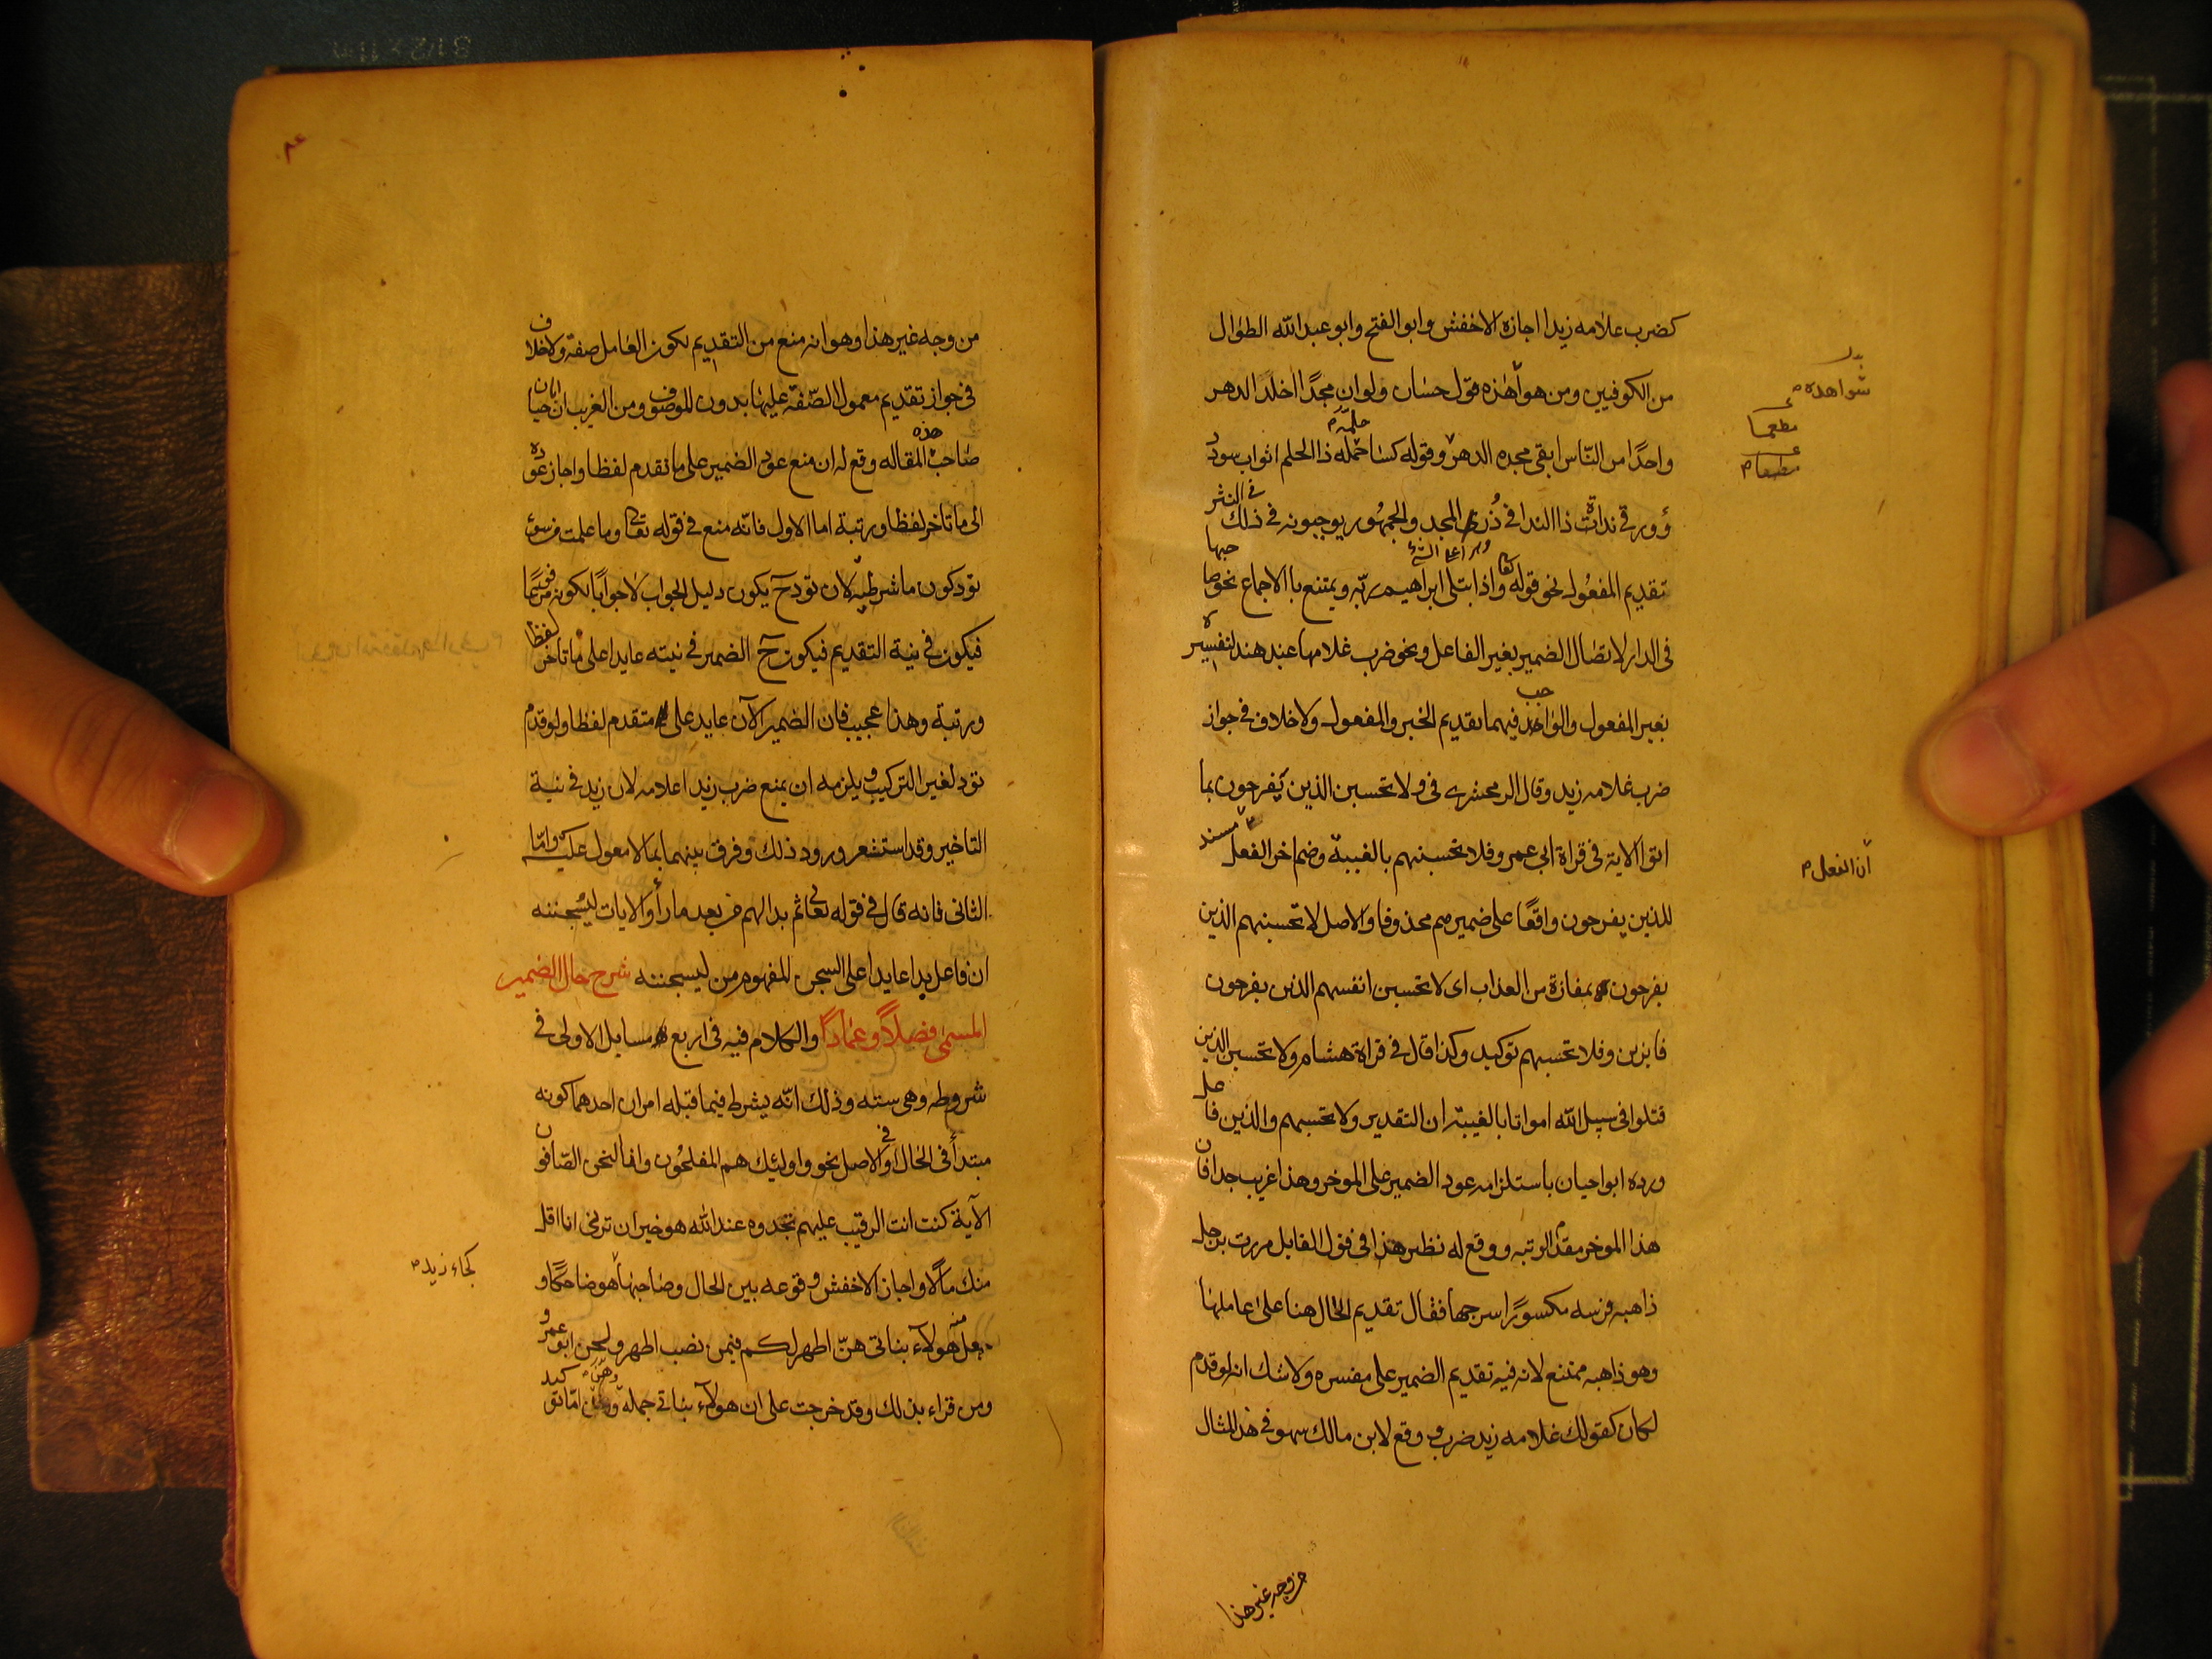 كضرب غلامه زيدا اجازه الاخفش وابو الفتح وابو عبد الله الطوال
من الكوفيين ومن شواهده قول حسان ولو ان مجدًا اخلد الدهر
واحدًا من الناس ابقى مجده الدهر مطعما وقوله كسا حلمه ذا الحلم اثواب سودد
ورقى نداه ذا الندا فى ذرى المجد والجمهور يوجبون فى ذلك فى النثر
تقديم المفعول نحو قوله تعا واذ ابتلى ابراهيم ربه ويمتنع باالاجماع نحو صاحبها
فى الدار لاتصال الضمير بغير الفاعل ونحو ضرب غلامها عبد هند لتفسيره
بغير المفعول والواجب فيهما تقديم الخبر والمفعول ولا خلاف فى جواز
ضرب غلامه زيد وقال الزمخشرى فى ولا تحسبن الذين يفرحون بما
اتوا الاية فى قراة ابى عمرو فلا تحسبنهم بالغيبة وضم اخر الفعل ان الفعل مسند
للذين يفرحون واقعًا على ضميرهم محذوفا والاصل لا تحسبنهم الذين
يفرحون بمفازة من العذاب اى لا تحسبن انفسهم الذين يفرحون
فايزين وفلا تحسبنهم توكيد وكذا قال فى قراة هشام ولا تحسبن الذين
قتلوا فى سبيل الله امواتا بالغيبة ان التقدير ولا تحسبنهم والذين فاعل
ورده ابو حيان باستلزامه عود الضمير على الموخر وهذا غريب جدا فان
هذا الموخر مقدم الرتبه ووقع له نظير هذا فى قول القايل مررت برجل
ذاهبه فرسه مكسورًا سرجها فقال تقديم الحال هنا على عاملها
وهو ذاهبه ممتنع لانه فيه تقديم الضمير على مفسره ولا شك انه لو قدم
لكان كقولك غلامه زيد ضرب ووقع لابن مالك سهو فى هذا المثال
من وجه غير هذا
من وجه غير هذا وهو انه منع من التقديم لكون العامل صفة ولا خلاف
فى جواز تقديم معمول الصفة عليها بدون الموصوف ومن الغريب ان ابا حيان
صاحب هذه المقاله وقع له ان منع عود الضمير على ما تقدم لفظا واجاز عوده
الى ما تاخر لفظا ورتبة اما الاول فانه منع فى قوله تعا وما عملت من سوء
تود كون ما شرطيه لان تود ح يكون دليل الجواب لا جوابًا لكونه مرفوعًا
فيكون فى نية التقديم فيكون ح الضمير فى نيته عايدا على ما تاخر لفظا
ورتبة وهذا عجيب فان الضمير الآن عايد على متقدم لفظا ولو قدم
تود لغير التركيب ويلزمه ان يمنع ضرب زيدا غلامه لان زيد فى نية
التاخير وقد استشعر ورود ذلك وفرق بينهما بما لا معول عليه واما
الثانى فانه قال فى قوله تعالى ثم بدا لهم من بعد ما رأوا الايات ليسجننه
ان فاعل بدا عايدا على السجن المفهوم من ليسجننه شرح حال الضمير
المسمى فصلاً وعمادًا والكلام فيه فى اربع مسايل الاولى فى
شروطه وهى سته وذلك انه يشرط فيما قبله امران احدهما كونه
مبتدأ فى الحال او فى الاصل نحو واوليك هم المفلحون وانا لنحن الصافون
الآية كنت انت الرقيب عليهم تجدوه عند الله هو خير ان ترنى انا اقل
منك مالا واجاز الاخفش وقوعه بين الحال وصاحبها كجاء زيد هو ضاحكا و
جعل منه هولاء بناتى هنّ اطهر لكم فيمن نصب اطهر ولحن ابو عمرو
ومن قراء بذلك وقد خرجت على ان هولآء بناتى جملة وهن اما توكيد